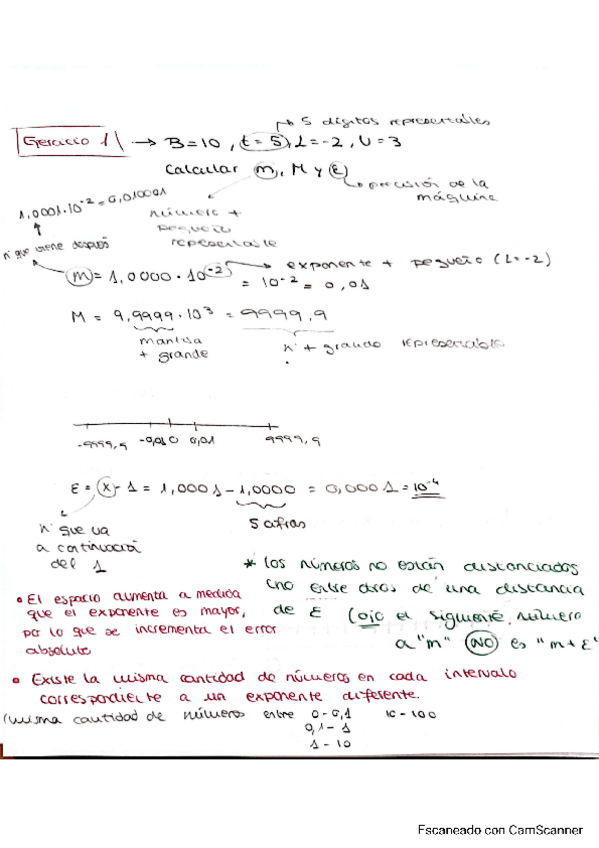 5 dígitos representables
Ejercicio 1 → B=10, t=5, L=-2, U=3
Calcular m, M y ε
precisión de la
máquina
número +
pequeño
representable
1,0001·10^-2 = 0,010001
nº que viene después
m = 1,0000 · 10^-2 → exponente + pequeño (L=-2)
= 10^-2 = 0,01
M = 9,9999·10^3 = 9999,9
mantisa
+ grande
nº + grande representable
-9999,9 -0,01 0 0,01 9999,9
ε = x - 1 = 1,0001 - 1,0000 = 0,0001 = 10^-4
5 cifras
nº que va
a continuación
del 1
* los números no están distanciados
uno entre otros de una distancia
de ε (ojo el siguiente número
a "m" NO es "m+ε"
• El espacio aumenta a medida
que el exponente es mayor,
por lo que se incrementa el error
absoluto
• Existe la misma cantidad de números en cada intervalo
correspondiente a un exponente diferente.
(misma cantidad de números entre 0-0,1 10-100
0,1-1
1-10
Escaneado con CamScanner